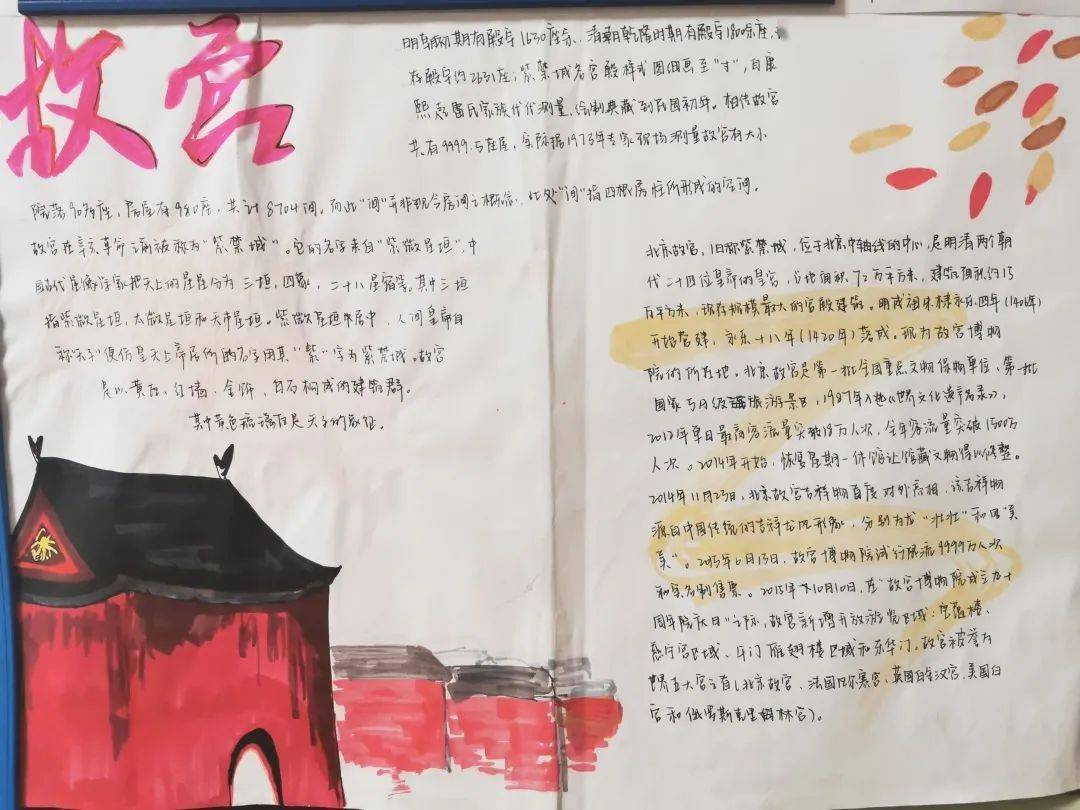 故宫
明朝初期有殿宇1630座余、清朝乾隆时期有殿宇1800余座、
存殿宇约2631座;紫禁城各宫殿样式图细画至"寸",自康
熙起雷氏家族代代测量、绘制典藏到民国初年。相传故宫
共有9999.5左屋,实际据1973年专家现场测量故宫有大小
院落90多座,房屋有980座,共计8704间。而此"间"并非现今房间之概念,此处"间"指四根房柱所形成的空间。
故宫在辛亥革命之前被称为"紫禁城"。它的名字来自"紫微星垣",中
国古代星象学家把天上的星星分为三垣,四象,二十八星宿等。其中三垣
指紫微星垣,太微星垣和天市星垣。紫微星垣中居中,人间皇帝自
称"天子"便仿皇天上帝居所的名字用其"紫"字为紫禁城。故宫
是以黄瓦、红墙、金饰、白石构成的建筑群。
其中黄色琉璃瓦是天子的象征。
北京故宫,旧称紫禁城,位于北京中轴线的中心,是明清两个朝
代二十四位皇帝的皇宫,占地面积72万平方米,建筑面积约15
万平方米,现存规模最大的宫殿建筑。明成祖朱棣永乐四年(1406年)
开始营建,永乐十八年(1420年)落成。现为故宫博物
院的所在地。北京故宫是第一批全国重点文物保护单位、第一批
国家5A级旅游景区,1987年入选《世界文化遗产名录》,
2012年单日最高客流量突破18万人次,全年客流量突破1500万
人次。2014年开始,恢复星期一休馆让馆藏文物得以修整。
2014年11月23日,北京故宫吉祥物首度对外亮相,该吉祥物
源自中国传统的吉祥龙凤形象,分别为龙"壮壮"和凤"美
美"。2015年6月13日,故宫博物院试行限流9999万人次
和实名制售票。2015年10月10日,在"故宫博物院成立九十
周年院庆日"之际,故宫新增开放游览区域:宝蕴楼、
慈宁宫区域、午门雁翅楼区域和东华门。故宫被誉为
世界五大宫之首(北京故宫、法国凡尔赛宫、英国白金汉宫、美国白
宫和俄罗斯克里姆林宫)。